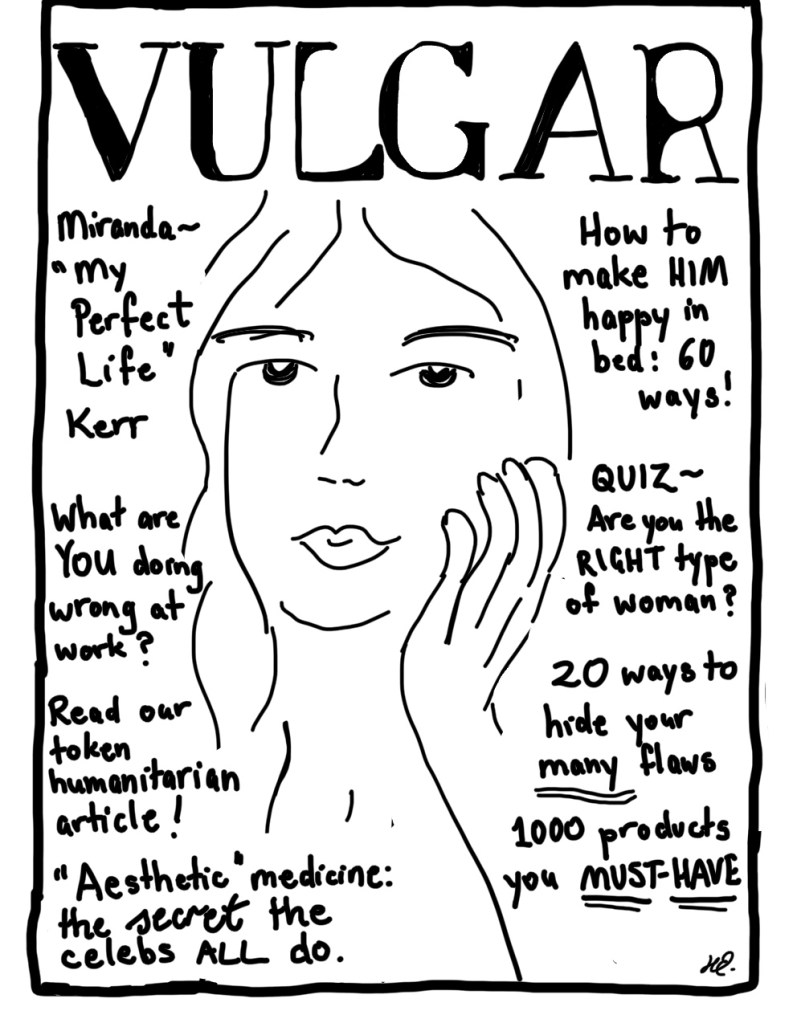 VULGAR
Miranda~
"My
Perfect
Life"
Kerr
What are
YOU doing
wrong at
work?
Read our
token
humanitarian
article!
"Aesthetic" medicine:
the secret the
celebs ALL do.
How to
make HIM
happy in
bed: 60
ways!
QUIZ~
Are you the
RIGHT type
of woman?
20 ways to
hide your
many flaws
1000 products
you MUST-HAVE